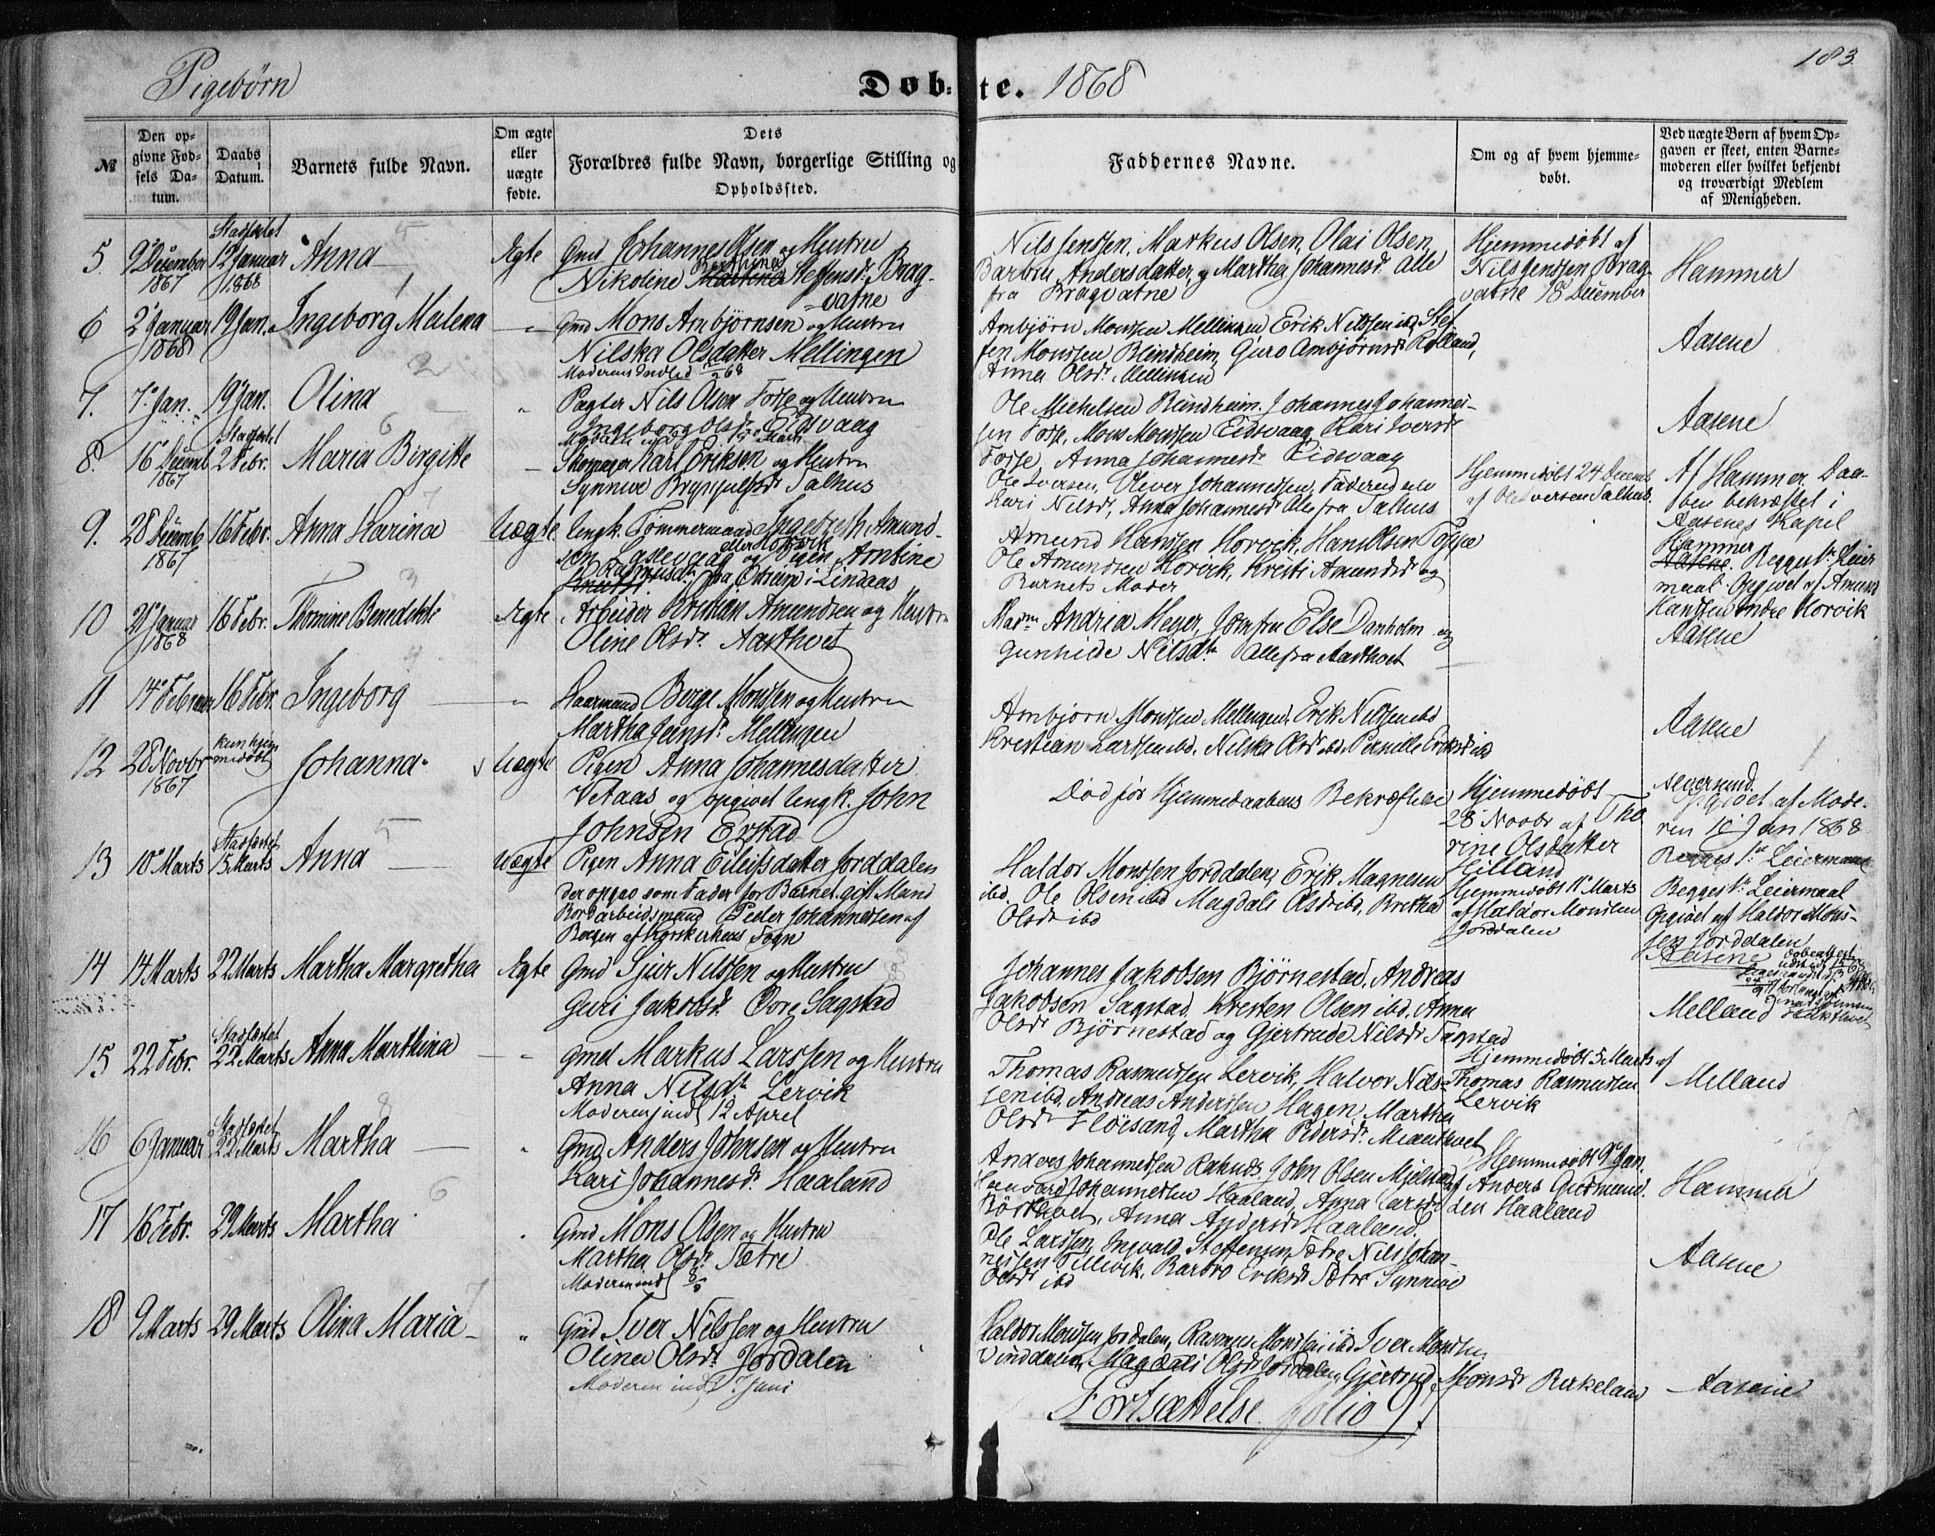 183
Pigebørn
Døbte. 1868
№
Den opgivne Fødsels Datum.
Daabs Datum.
Barnets fulde Navn.
Om ægte eller uægte fødte.
Dets Forældres fulde Navn, borgerlige Stilling og Opholdssted.
Faddernes Navne.
Om og af hvem hjemmedøbt.
Ved uægte Børn af hvem Opgaven er skeet, enten Barnemoderen eller hvilket bekjendt og troværdigt Medlem af Menigheden.
5. 9 December 1867
Stadfæstet 12 Januar 1868
Anna
Ægte
Gmd Johannes Olsen og Hustru
Nikoline Steffensdr Brag-
vatne
Nils Jenssen, Markus Olsen, Olai Olsen,
Barbru Andersdatter, og Martha Johannesdr Alle
fra Bragvatne
Hjemmedøbt af
Nils Jenssen Brag-
vatne 18 December
Hammer
6 2 Januar 1868
19 Jan.
Ingeborg Malena
Gmd Mons Ambjørnsen og Hustru
Nilska Olsdatter Mellingen
Ambjørn Monssen Mellingen Erik Nilssen ibd Stef
fen Monssen Blindheim, Guro Ambjørnsdr
Anna Olsdr Mellingen
Aasene
7. 7 Jan.
19 Jan.
Olina
Pagter Nils Olsen Fosse og Hustru
Ingeborg Olsdr Eidsvaag
Ole Michelsen Blindheim, Johannes Johannes-
sen Fosse, Mons Monssen Eidsvaag, Kari Iversdr
Fosse, Anna Johannesdr Eidsvaag
Aasene
8. 16 Decemb 1867
Stadfæstet 2 Febr.
Maria Birgitte
Skomager Karl Eriksen og Hustru
Synneve Brynjulfsdr Salhus
Ole Iversen, Oliver Johannessen, Faderen
Kari Nilsdr, Anna Johannesdr Alle fra Salhus
Hjemmedøbt 24 Decemb
af Ole Iversen Salhus.
Af Hammer. Daa-
ben bekræftet i
Aasenes Kapel
9. 28 Decemb 1867
16 Febr.
Anna Karina
Uægte
Ungk. Tømmermand Ingebreth Amund-
sen og Pigen Anbine
i Lindaas
Amund Hanssen Horvik, Hans Olsen Toppe
Ole Amundsen Horvik, Kristi Amundsdr og
Barnets Moder
Hammer
Begges 1ste Leier
maal Opgivet af Amund
Hanssen indre Horvik
10 Januar 1868
16 Febr.
Thomine Benedikte
Ægte
Arbeider Kristian Amundsen og Hustru
Oline Olsdr Aastvet
Mad Andrea Meyer, Jomfru Else Danholm og
Gunhilde Nilsdr Alle fra Aastvet
Aasene
11 14 Februar
16 Febr.
Ingeborg
Berge Monssen og Hustru
Martha Jensdr Mellingen
Ambjørn Monssen Mellingen, Erik Nilssen ibd
Kristian Larssen ibd. Nilska Olsdr ibd. Pernille Eriksdr ibd
Aasene
12 28 Novbr 1867
kun hjem
medøbt
Johanna
Uægte
Pigen Anna Johannesdatter
Vetaas og opgivet Ungk. John
Johnsen Erstad
Død før Hjemmedaabens Bekræftelse
Hjemmedøbt
28 Novbr af Tho
rine Olsdatter
Hilland
Alversund.
Opgivet af Mode-
ren 10 Jan 1868
Begges 1ste Leiermaal
13 10 Marts
Stadfæstet 15 Marts
Anna
Uægte
Pigen Anna Eilifsdatter Jorddalen
der opgav som Fader for Barnet gift Mand
Bordarbeidsmand Peder Johannessen af
Bergen af Korskirkens Sogn
Haldor Monssen Jorddalen, Erik Magnesen
ibd. Ole Olsen ibd Magdale Olsdr ibd. Bretha
Olsdr ibd
Hjemmedøbt 11 Marts
af Haldor Monssen
Jorddalen
Begges 1ste Leiermaal
Opgivet af Haldor Mons-
sen Jorddalen
Aasene
14 14 Marts
22 Marts
Martha Margretha
Ægte
Gmd Sjur Nilssen og Hustru
Guri Jakobsdr Øvre Sagstad
Johannes Jakobsen Bjørnestad, Andreas
Jakobsen Sagstad. Kresten Olsen ibd. Anna
Olsdr Bjørnestad og Gjertrude Nilsdr Sagstad
Melland
15 22 Febr.
Stadfæstet 22 Marts
Anna Marthina
Gmd Markus Larssen og Hustru
Anna Nilsdr Lervik
Moderen ind 12 April
Thomas Rasmussen Lervik, Halvor Nils-
sen ibd. Andreas Anderssen Hagen, Martha
Olsdr Fløisand, Martha Pedersdr
Hjemmedøbt 5 Marts af
Thomas Rasmussen
Lervik
Melland
16 6 Januar
Stadfæstet 22 Marts
Martha
Gmd Anders Johnsen og Hustru
Kari Johannesdr Haaland
Anders Johannessen Raknes, John Olsen Mjelstad
Johannessen Haaland, Anna
Anna Andersdr Haaland
Hjemmedøbt 9 Jan.
af Anders Gudmund
sen Haaland
Hammer
17 16 Febr.
29 Marts
Martha
Gmd Mons Olsen og Hustru
Martha Olsdr Sætre
Ole Larssen, Ingvald Steffensen Sætre Nils Johan-
nessen Tillevik. Barbro Eriksdr Sætre Synneve
Olsdr ibd
Aasene
18 9 Marts
29 Marts
Olina Maria
Gmd Iver Nilssen og Hustru
Olina Olsdr Jordalen
Moderen ind 7 Juni
Haldor Monssen Jordalen, Rasmus Monssen ibd Iver Monssen
Magdali Olsdr Jordalen, Gjertrud Monsdr Birkeland
Aasene
Fortsættelse folio 9